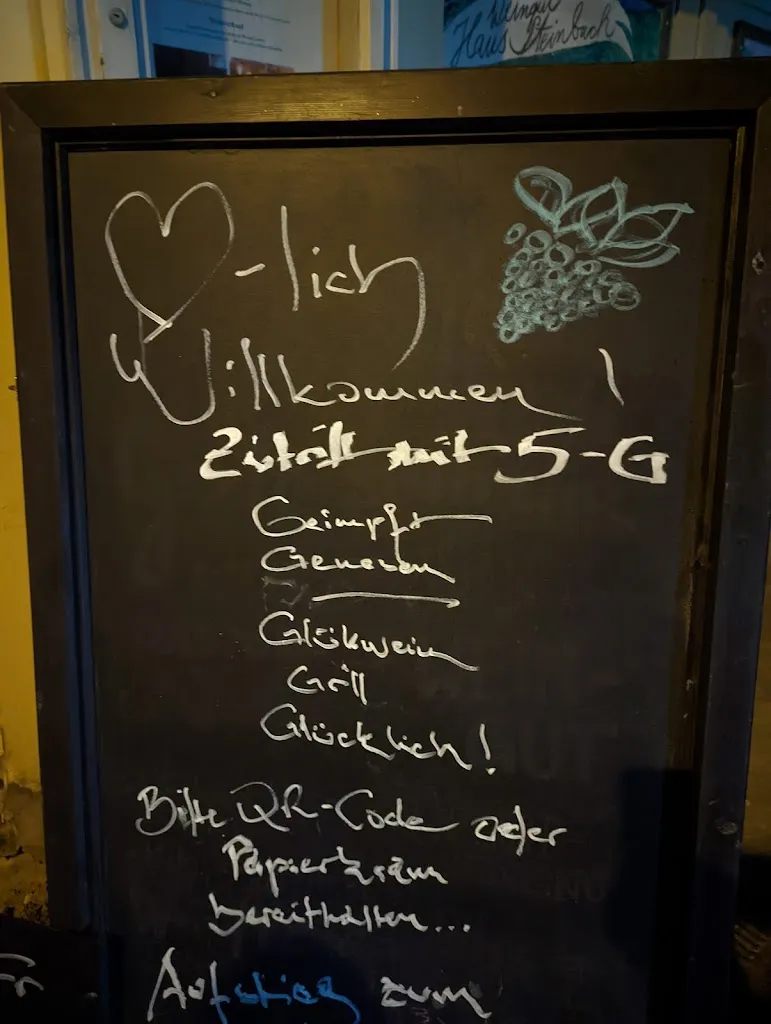 Haus Steinbach
-lich
Willkommen!
Zutritt mit 5-G
Geimpft
Genesen
Glükwein
Grill
Glücklich!
Bitte QR-Code oder
Papierkram
bereithalten...
Aufstieg zum